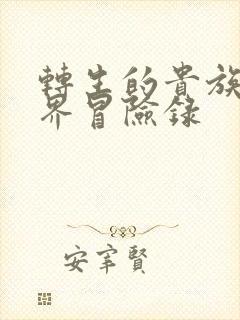 轉生的貴族
界冒險錄
安宰賢